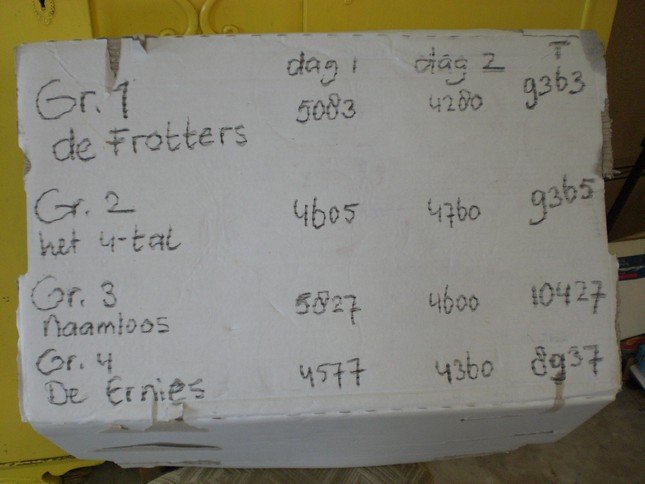 dag 1 dag 2 T
Gr. 1 5083 4280 9363
de Frotters
Gr. 2 4605 4760 9365
het 4-tal
Gr. 3 5827 4600 10427
Naamloos
Gr. 4 4577 4360 8937
De Ernies